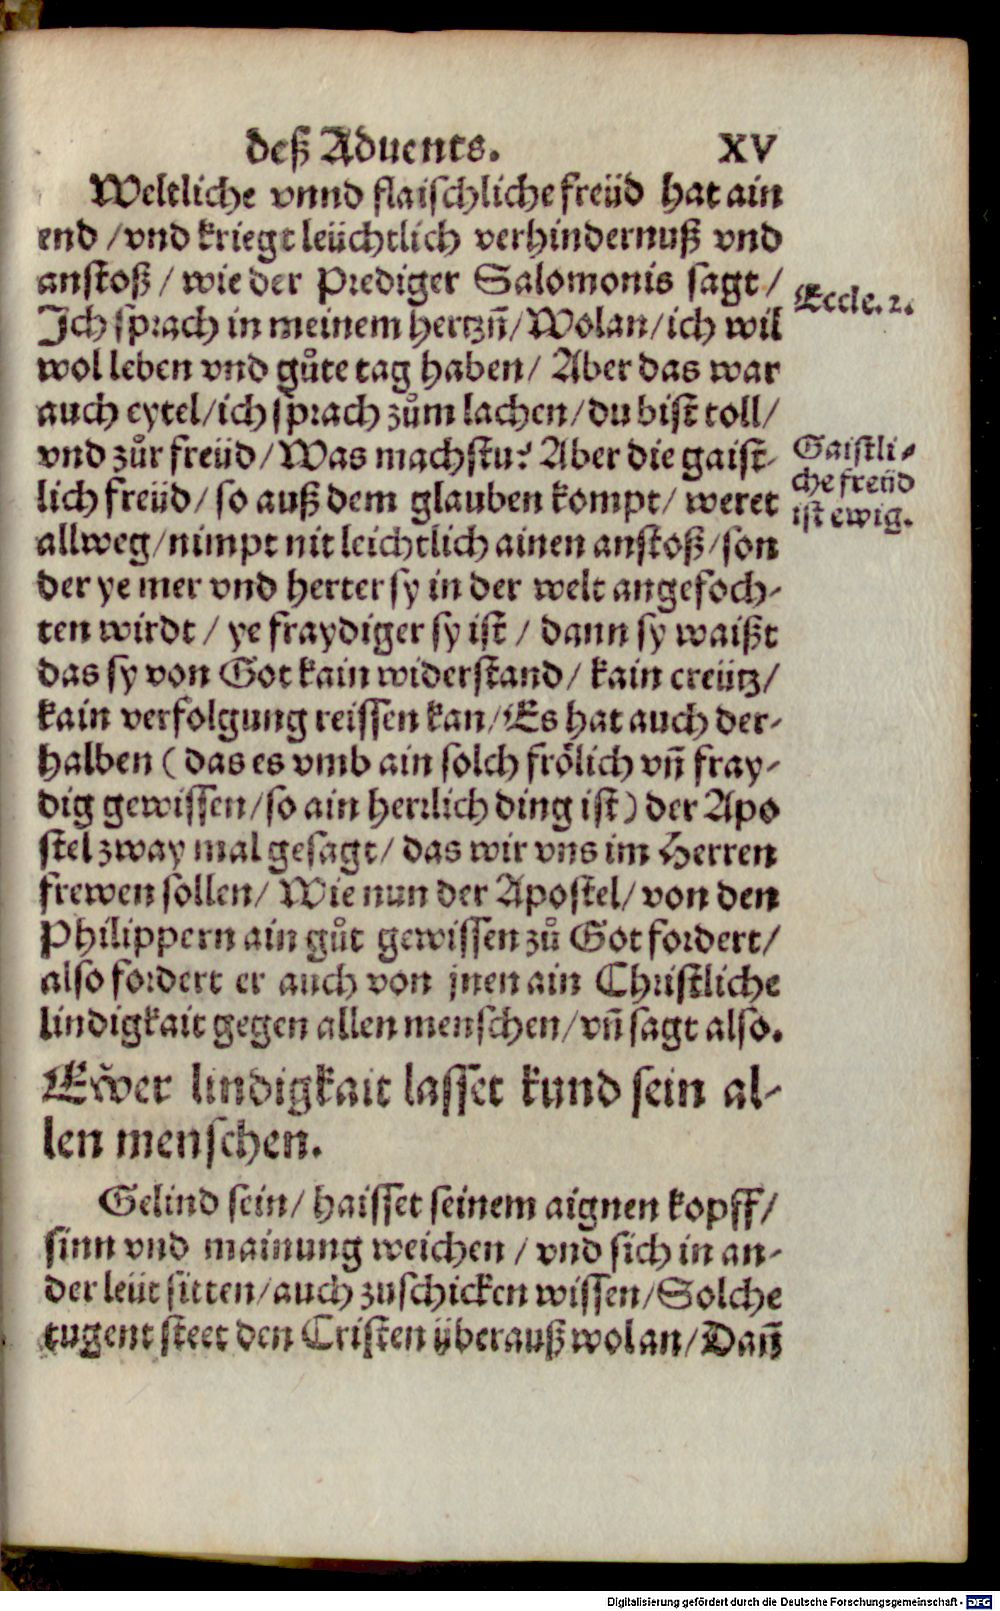 deß Aduents. XV
Weltliche vnnd flaischliche freüd hat ain
end /vnd kriegt leüchtlich verhindernuß vnd
anstoß / wie der Prediger Salomonis sagt /
Eccle. 2.
Ich sprach in meinem hertzñ/Wolan/ich wil
wol leben vnd gůte tag haben/ Aber das war
auch eytel/ich sprach zům lachen/du bist toll/
vnd zůr freüd/Was machstu? Aber die gaist-
Gaistli-
che freüd
ist ewig.
lich freüd/ so auß dem glauben kompt/ weret
allweg/nimpt nit leichtlich ainen anstoß/son
der ye mer vnd herter sy in der welt angefoch-
ten wirdt / ye fraydiger sy ist / dann sy waißt
das sy von Got kain widerstand/ kain creütz/
kain verfolgung reissen kan/Es hat auch der-
halben (das es vmb ain solch frölich vñ fray-
dig gewissen/so ain herrlich ding ist) der Apo
stel zway mal gesagt/ das wir vns im Herren
frewen sollen/ Wie nun der Apostel/ von den
Philippern ain gůt gewissen zů Got fordert/
also fordert er auch von jnen ain Christliche
lindigkait gegen allen menschen/vñ sagt also.
Ewer lindigkait lasset kund sein al-
len menschen.
Gelind sein/ haisset seinem aignen kopff/
sinn vnd mainung weichen / vnd sich in an-
der leüt sitten/auch zuschicken wissen/Solche
tugent steet den Cristen überauß wol an/Dañ
Digitalisierung gefördert durch die Deutsche Forschungsgemeinschaft - DFG